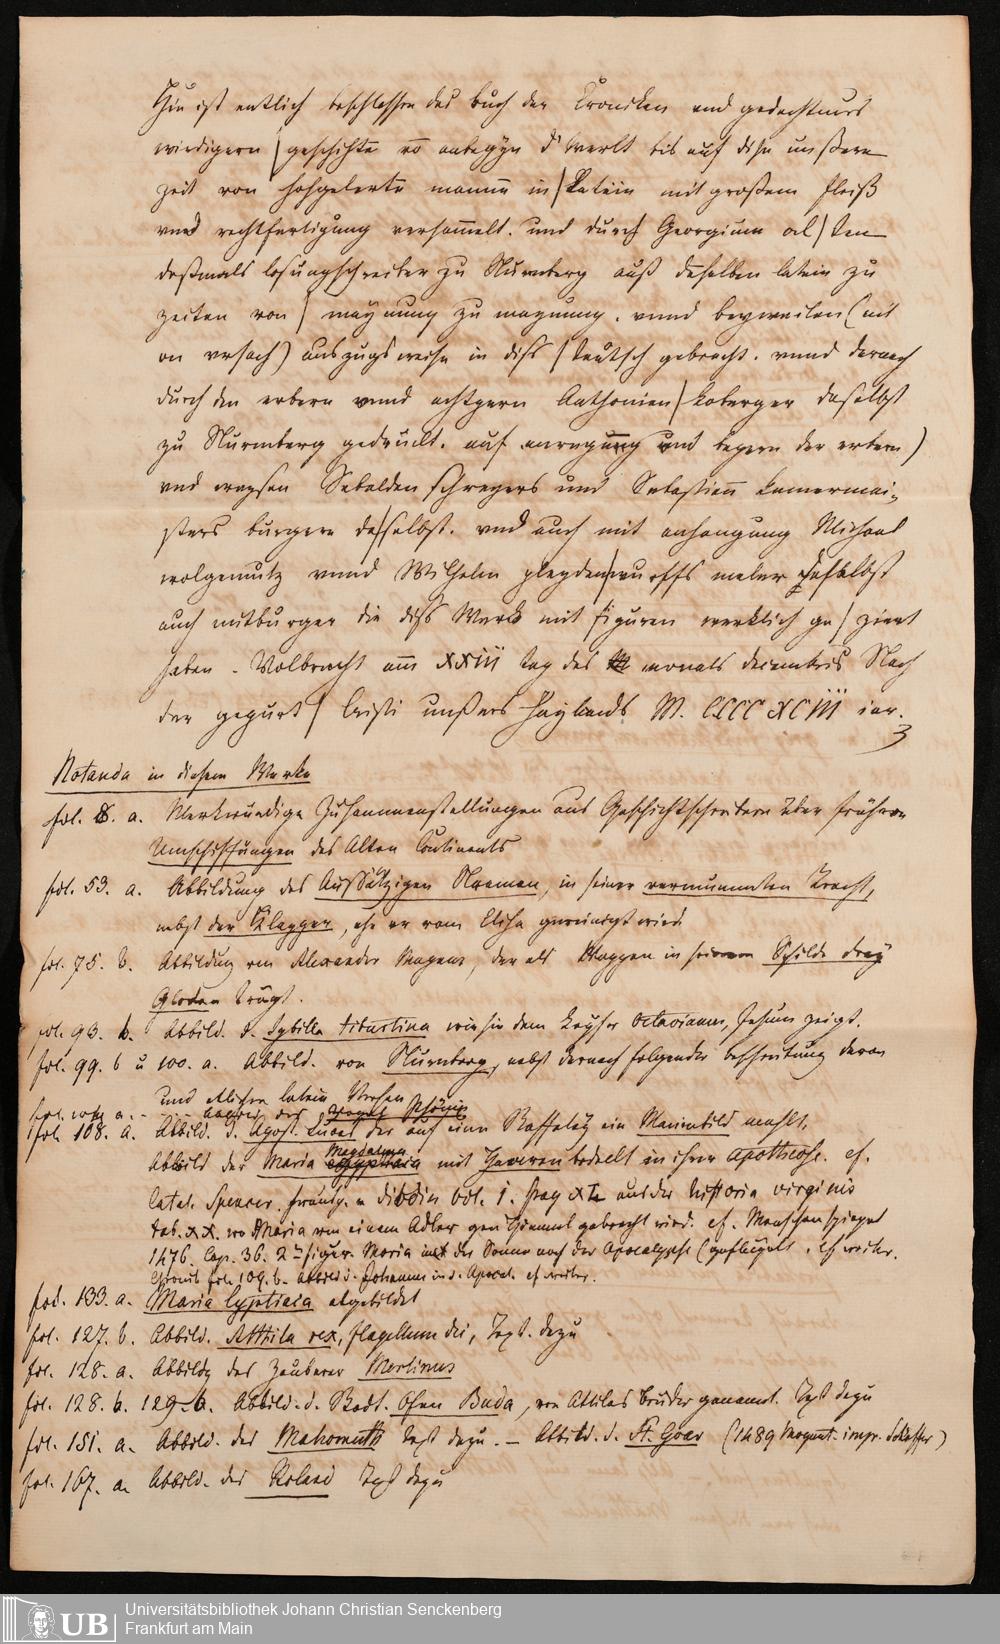 Hie ist entlich beschlossen das buch der Cronicken vnd gedechtnus
wirdigern | geschihte vō anbegyn d' werlt bis auf dise unßere
zeit von hohgelerte mannē in | Latein mit großem fleiß
vnd rechtfertigung versam̄elt. und durch Georgium al | ten
deßmals losungschreiber zu Nurmberg auß deselben latein zu
zeiten von | maynung zu maynung. vnnd beyweilen (nit
on vrsach) auszugs weise in diss | teutsch gebracht. vnnd darnach
durch den erbern vnnd achtpern Anthonien | koberger daselbst
zu Nurmberg gedruckt. auf anregung und begern der erbern |
vnd weysen Sebalden schreyers und Sebastian kamermai-
sters burgere da | selbst. vnd auch mit anhangung Michael
wolgemutz vnnd Wilhelm pleydenwurffs maler daselbst
auch mitburger die diss Werck mit figuren wercklich ge | ziert
haben. Volbracht am XXIII tag des monats decembris Nach
der gepurt | Cristi unßers Haylands M. CCCC XCIII iar.
Notanda in diesem Werke
fol. 8. a. Merkwürdige Zusammenstellungen aus Geschichtschreibern über frühere
Umschiffungen des Alten Continents
fol. 53. a. Abbildung des Aussätzigen Naaman, in seiner vermummten Tracht,
nebst der Klapper, ehe er vom Elisa gereinigt wird
fol. 75. b. Abbildung von Alexander Magnus, der als Wappen in seinem Schilde drey
Glocken trägt.
fol. 93. b. Abbild. d. Sybilla tiburtina wie sie dem Keyser Octavianus, Jesum zeigt.
fol. 99. b u 100. a. Abbild. von Nürnberg, nebst darnach folgender beschreibung davon
und etlichen latein Versen
fol. 104 a. - - Abbild des Vogel Phönix
fol. 108. a. Abbild. d. Apost. Lucas der auf einer Staffeley ein Marienbild mahlt.
Abbild der Maria Magdalena mit Haaren bedeckt in ihrer apotheose. cf.
Catal. Spencer. v Dibdin Vol. I. pag XI aus der historia virginis
tab. XX. wo Maria von einem Adler gen Himmel gebracht wird. cf. Menschenspiegel
1476. Cap. 36. 2te figur. Maria mit der Sonne nach der Apocalypse (geflügelt.
Chronik fol. 109. b. Abbild d. Johannes in d. Apocal.
fol. 133. a. Maria Egyptiaca abgebildet
fol. 127. b. Abbild. Atthila rex, flagellum dei, Text. dazu
fol. 128. a. Abbildg des Zauberer Merlinus
fol. 128. b. 129. a. Abbild. d. Stadt. Ofen Buda, von Attilas bruder genannt. Text dazu
fol. 151. a. Abbild. des Mahomeths Text dazu. - Abbild. d. St. Goar (1489 Mogunt. impr. Schöffer)
fol. 167. a. Abbild. des Roland Text dazu
Universitätsbibliothek Johann Christian Senckenberg
Frankfurt am Main
UB